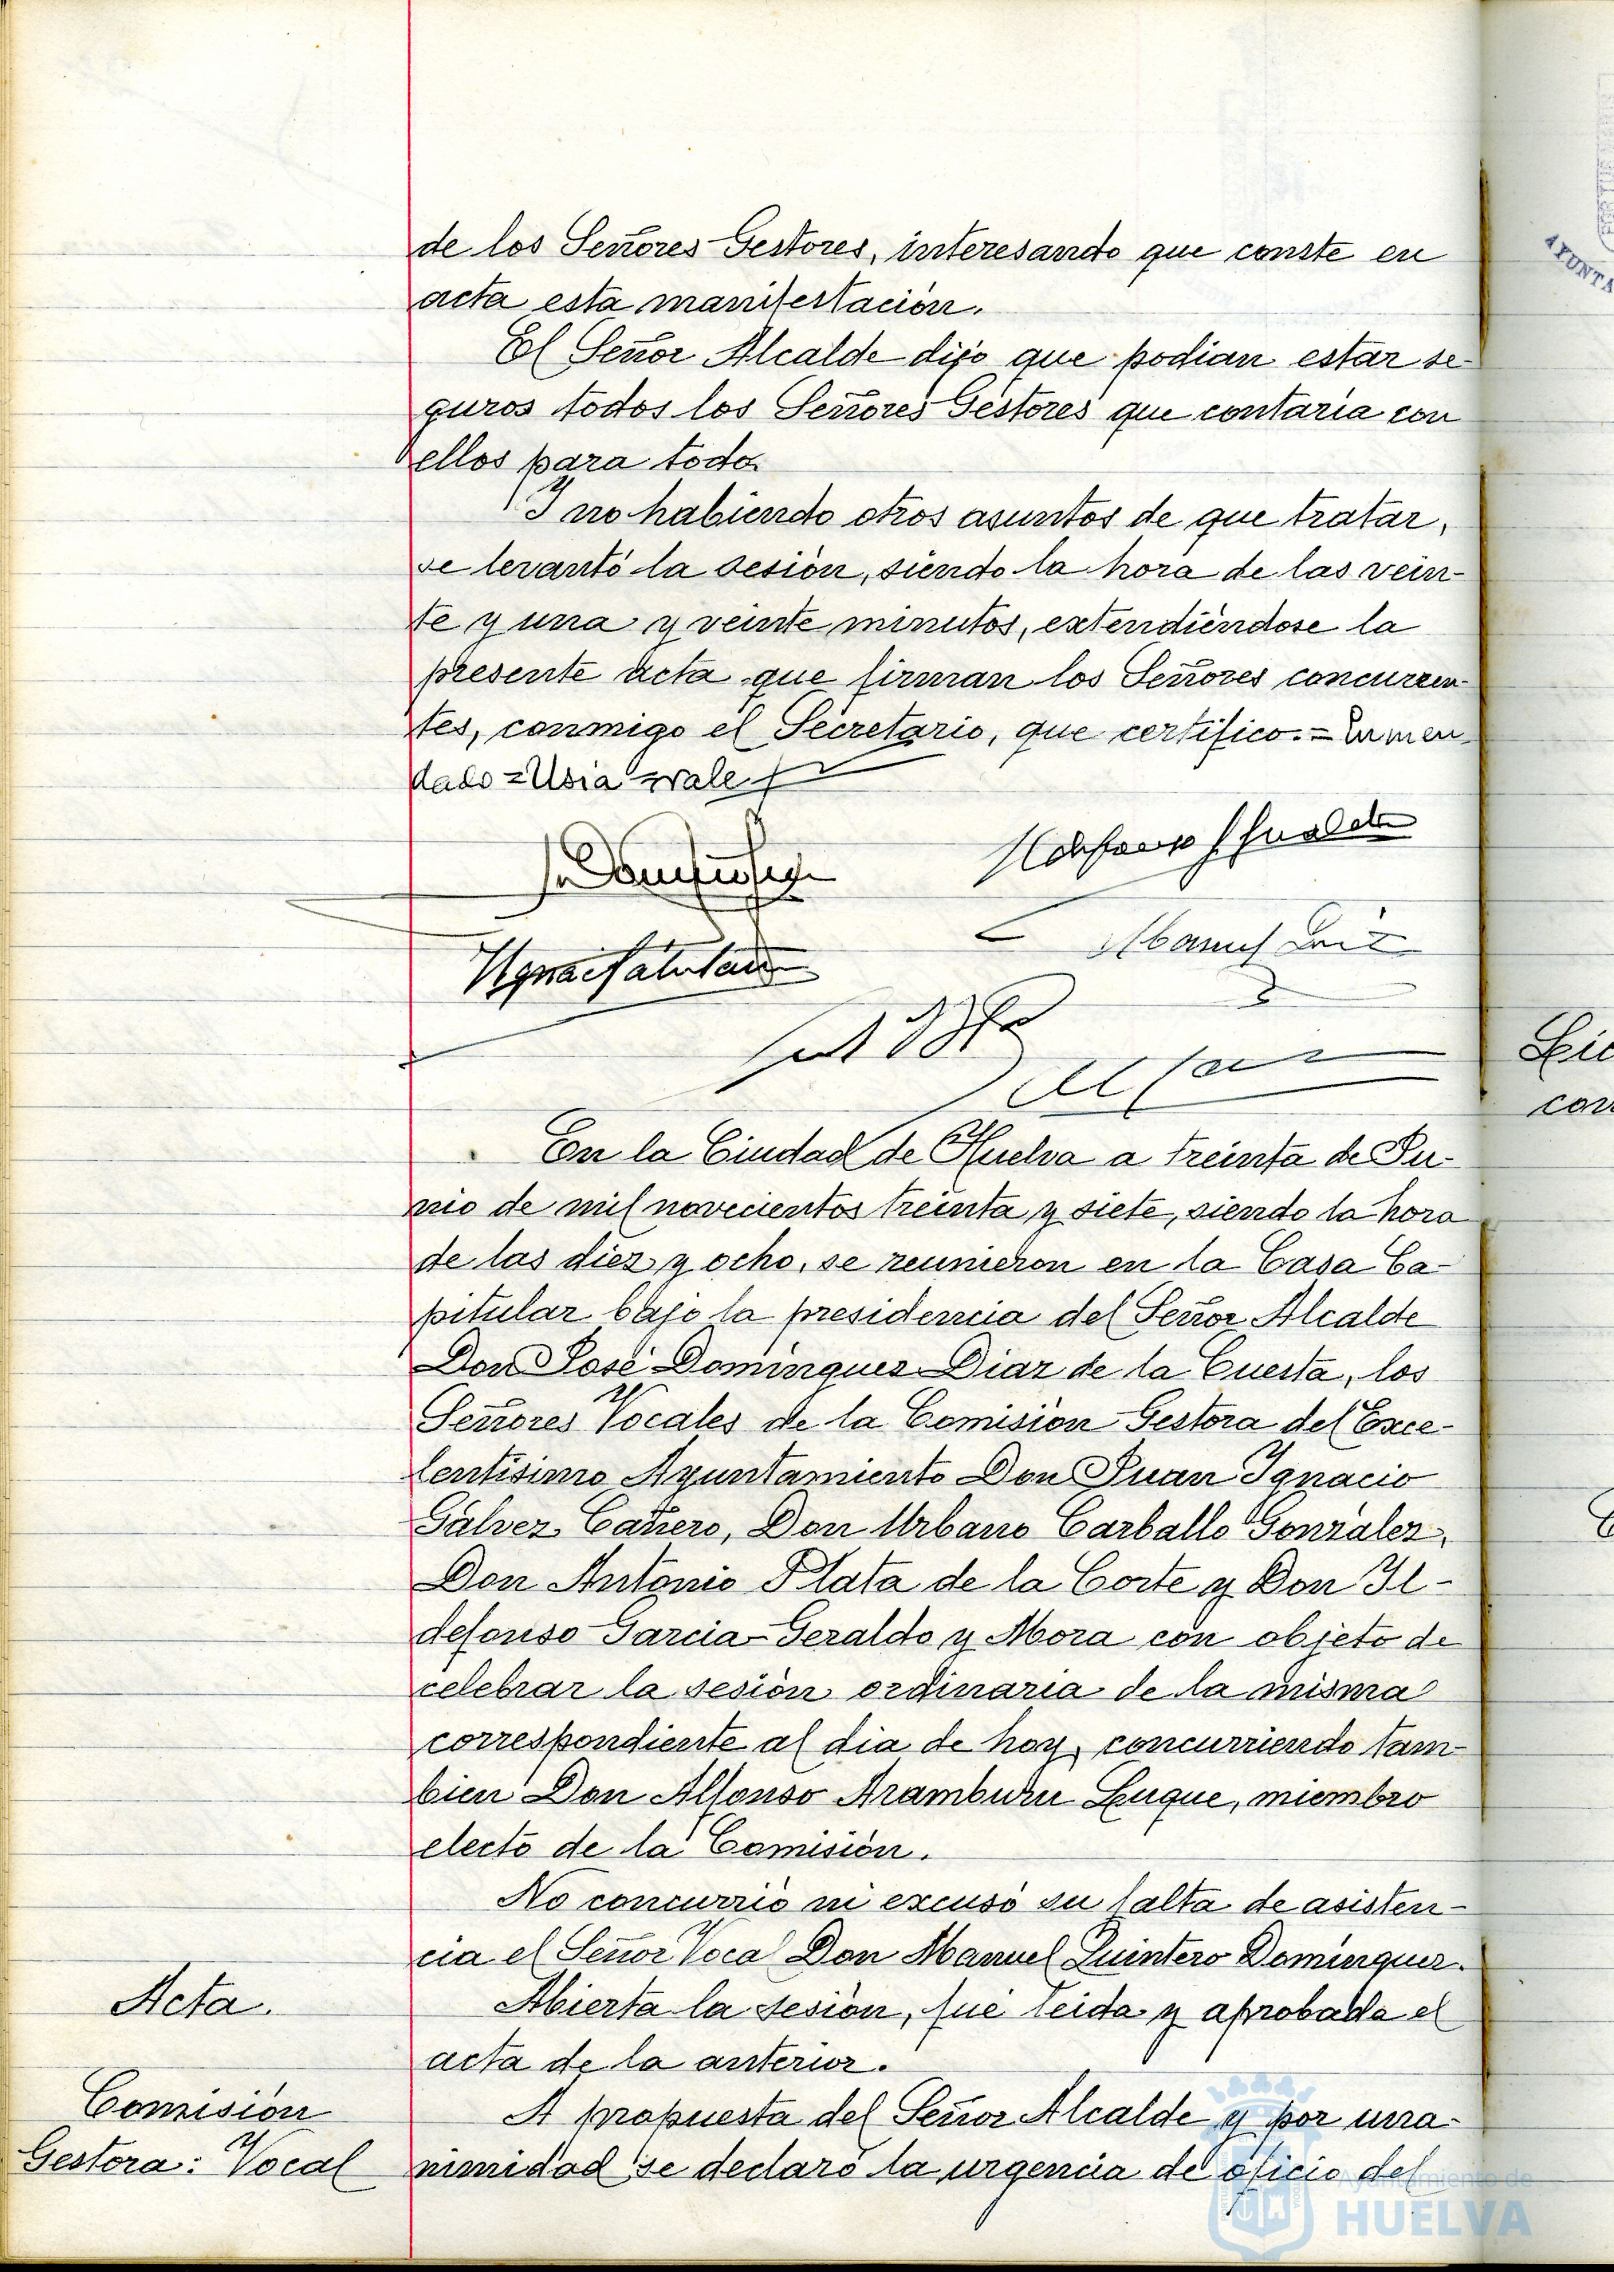 de los Señores Gestores, interesando que conste en
acta esta manifestación.
El Señor Alcalde dijo que podian estar se-
guros todos los Señores Gestores que contaria con
ellos para todo.
Y no habiendo otros asuntos de que tratar,
se levantó la sesión, siendo la hora de las vein-
te y una y veinte minutos, extendiéndose la
presente acta que firman los Señores concurren-
tes, conmigo el Secretario, que certifico. = Enmen-
dado = Usia = vale
En la Ciudad de Huelva a treinta de Ju-
nio de mil novecientos treinta y siete, siendo la hora
de las diez y ocho, se reunieron en la Casa Ca-
pitular bajo la presidencia del Señor Alcalde
Don José Dominguez Diaz de la Cuesta, los
Señores Vocales de la Comisión Gestora del Exce-
lentisimo Ayuntamiento Don Juan Ignacio
Gálvez Cañero, Don Urbano Carballo González,
Don Antonio Plata de la Corte y Don Il-
defonso Garcia-Geraldo y Mora con objeto de
celebrar la sesión ordinaria de la misma
correspondiente al dia de hoy, concurriendo tam-
bien Don Alfonso Aramburu Luque, miembro
electo de la Comisión.
No concurrió ni excusó su falta de asisten-
cia el Señor Vocal Don Manuel Quintero Dominguez.
Acta.
Abierta la sesión, fué leida y aprobada el
acta de la anterior.
Comisión
Gestora: Vocal
A propuesta del Señor Alcalde y por una-
nimidad se declaró la urgencia de oficio del
Ayuntamiento de
HUELVA
AYUNTA